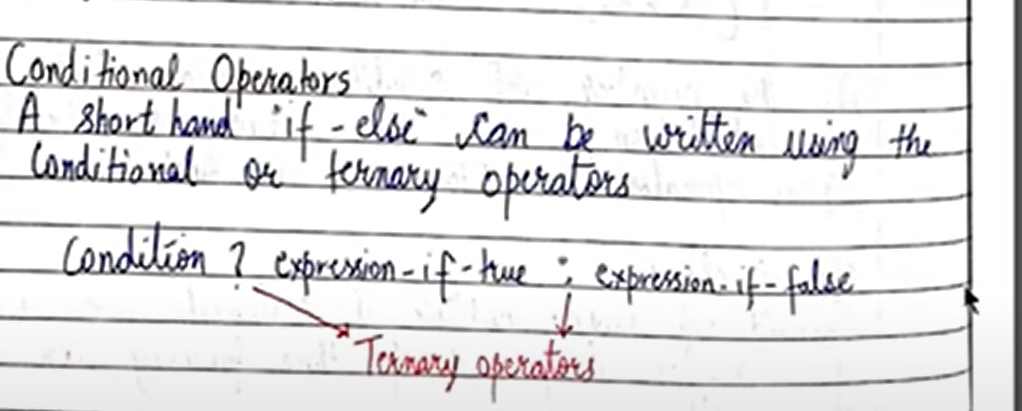 Conditional Operators
A short hand "if-else" can be written using the
Conditional or ternary operators
Condition ? expression-if-true : expression-if-false
Ternary operators